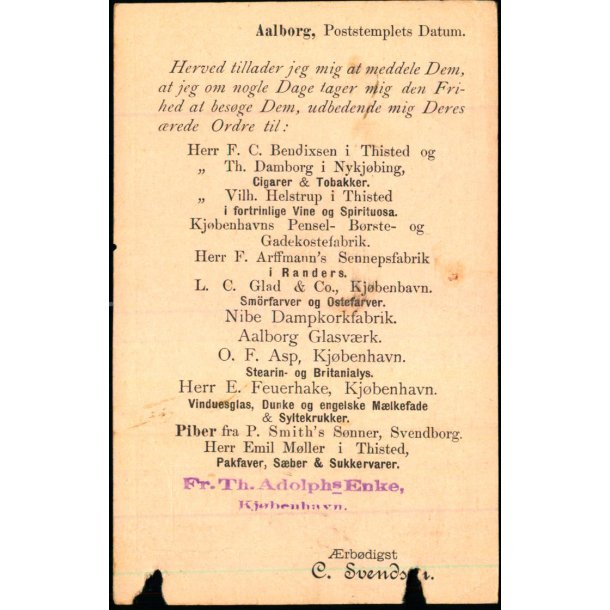 Aalborg, Poststemplets Datum.
Herved tillader jeg mig at meddele Dem,
at jeg om nogle Dage tager mig den Fri-
hed at besøge Dem, udbedende mig Deres
ærede Ordre til:
Herr F. C. Bendixsen i Thisted og
„ Th. Damborg i Nykjøbing,
Cigarer & Tobakker.
„ Vilh. Helstrup i Thisted
i fortrinlige Vine og Spirituosa.
Kjøbenhavns Pensel- Børste- og
Gadekostefabrik.
Herr F. Arffmann's Sennepsfabrik
i Randers.
L. C. Glad & Co., Kjøbenhavn.
Smörfarver og Ostefarver.
Nibe Dampkorkfabrik.
Aalborg Glasværk.
O. F. Asp, Kjøbenhavn.
Stearin- og Britanialys.
Herr E. Feuerhake, Kjøbenhavn.
Vinduesglas, Dunke og engelske Mælkefade
& Syltekrukker.
Piber fra P. Smith's Sønner, Svendborg.
Herr Emil Møller i Thisted,
Pakfaver, Sæber & Sukkervarer.
Fr. Th. Adolphs Enke,
Kjøbenhavn.
Ærbødigst
C.